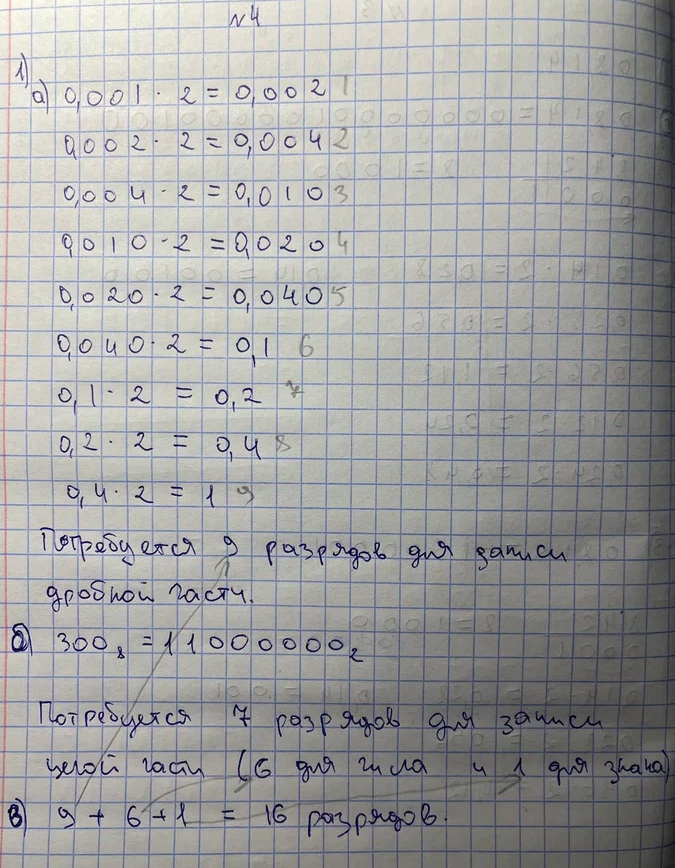 №4
1)
а) 0,001 · 2 = 0,002 1
0,002 · 2 = 0,004 2
0,004 · 2 = 0,010 3
0,010 · 2 = 0,020 4
0,020 · 2 = 0,040 5
0,040 · 2 = 0,1 6
0,1 · 2 = 0,2 7
0,2 · 2 = 0,4 8
0,4 · 2 = 1 9
Потребуется 9 разрядов для записи
дробной части.
б) 300₈ = 11000000₂
Потребуется 7 разрядов для записи
целой части (6 для числа и 1 для знака)
в) 9 + 6 + 1 = 16 разрядов.